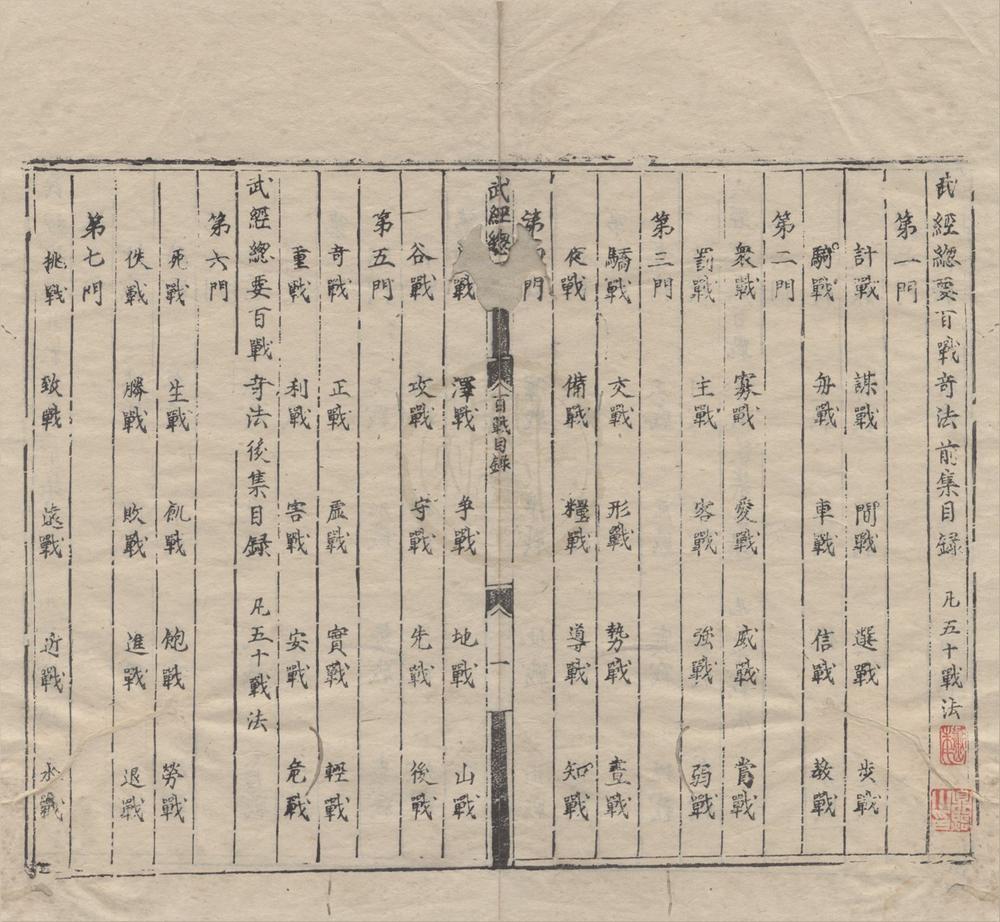 武經總要百戰奇法前集目録 凡五十戰法
第一門
計戰 謀戰 間戰 選戰 步戰
騎戰 舟戰 車戰 信戰 教戰
第二門
衆戰 寡戰 愛戰 威戰 賞戰
罰戰 主戰 客戰 強戰 弱戰
第三門
驕戰 交戰 形戰 勢戰 晝戰
夜戰 備戰 糧戰 導戰 知戰
第 門
武經總
百戰目録
一
戰 澤戰 争戰 地戰 山戰
谷戰 攻戰 守戰 先戰 後戰
第五門
奇戰 正戰 虛戰 實戰 輕戰
重戰 利戰 害戰 安戰 危戰
武經總要百戰奇法後集目録 凡五十戰法
第六門
死戰 生戰 飢戰 飽戰 勞戰
佚戰 勝戰 敗戰 進戰 退戰
第七門
挑戰 致戰 遠戰 近戰 水戰